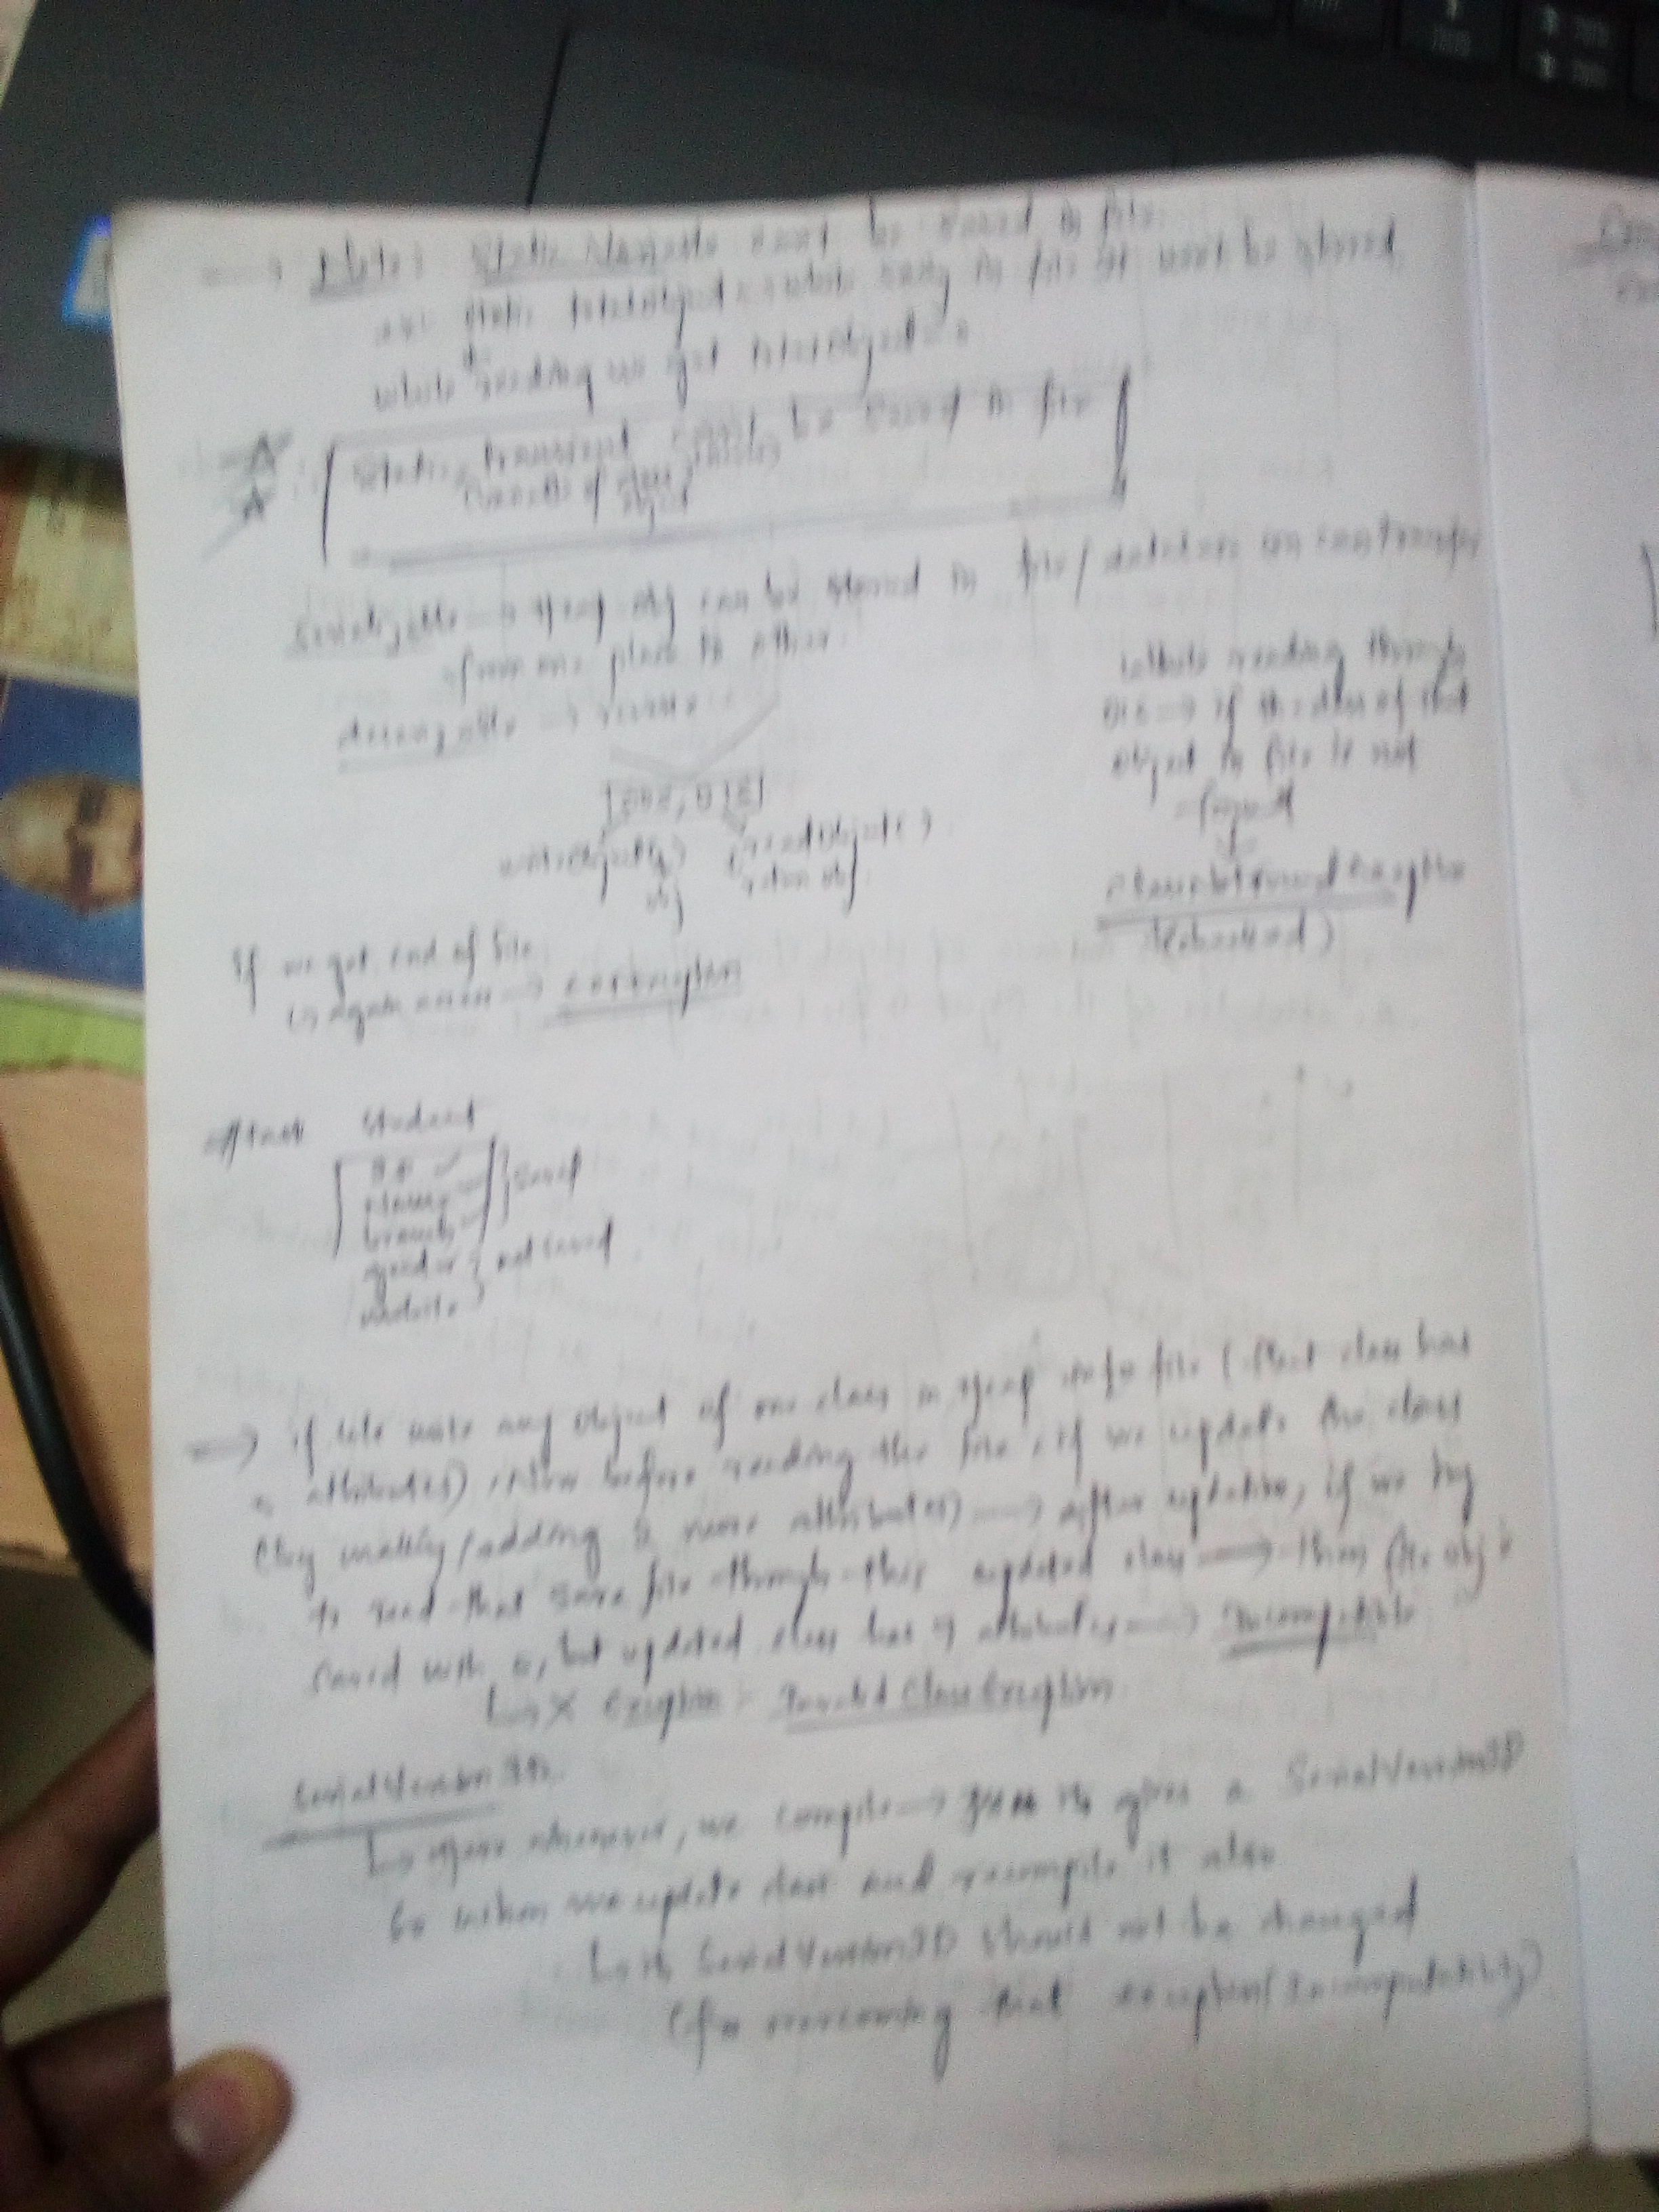 → Note: Static Elements can't be saved in file.
static totalobject = while in file it won't be stored
while reading we get totalobject = 0
Static, transient can't be saved in file
of class
object
Serializable → Heap obj can be stored in file / database we can transfer
from one place to other.
→ reverse
[OOS, OIS]
writeObject( )
obj
readObject( )
return obj
while reading through
OIS → if the class of that
object in file is not
found
ClassNotFoundException
(checked)
If we get end of file
↳ again → Exception
Task Student
name
branch
} saved
gender
website
} not saved
→ if we write any object of one class in heap into file (that class has
5 attributes). Now before reading the file, if we update the class
(by making/adding 2 more attributes) → after updation, if we try
to read that same file through this updated class → then file obj is
saved with 5, but updated class has 7 attributes → Incompatible
↳ X Exception: InvalidClassException
SerialVersionID
↳ whenever, we compile → it gives a SerialVersionID
So when we update class and recompile it also
↳ its SerialVersionID should not be changed
(for overcoming that exception (Incompatability)